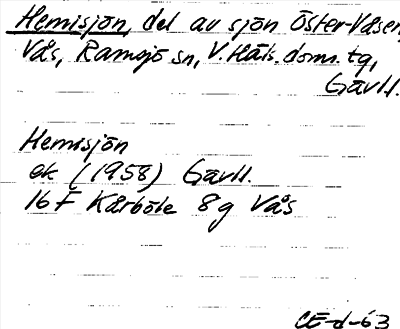 Hemisjön, del av sjön Öster-Våsen,
Vås, Ramsjö sn, V. Häls. doms. tg,
Gävl.l.
Hemisjön
ek (1958) Gävl.l.
16 F Kårböle 8 g Vås
CE-d-63